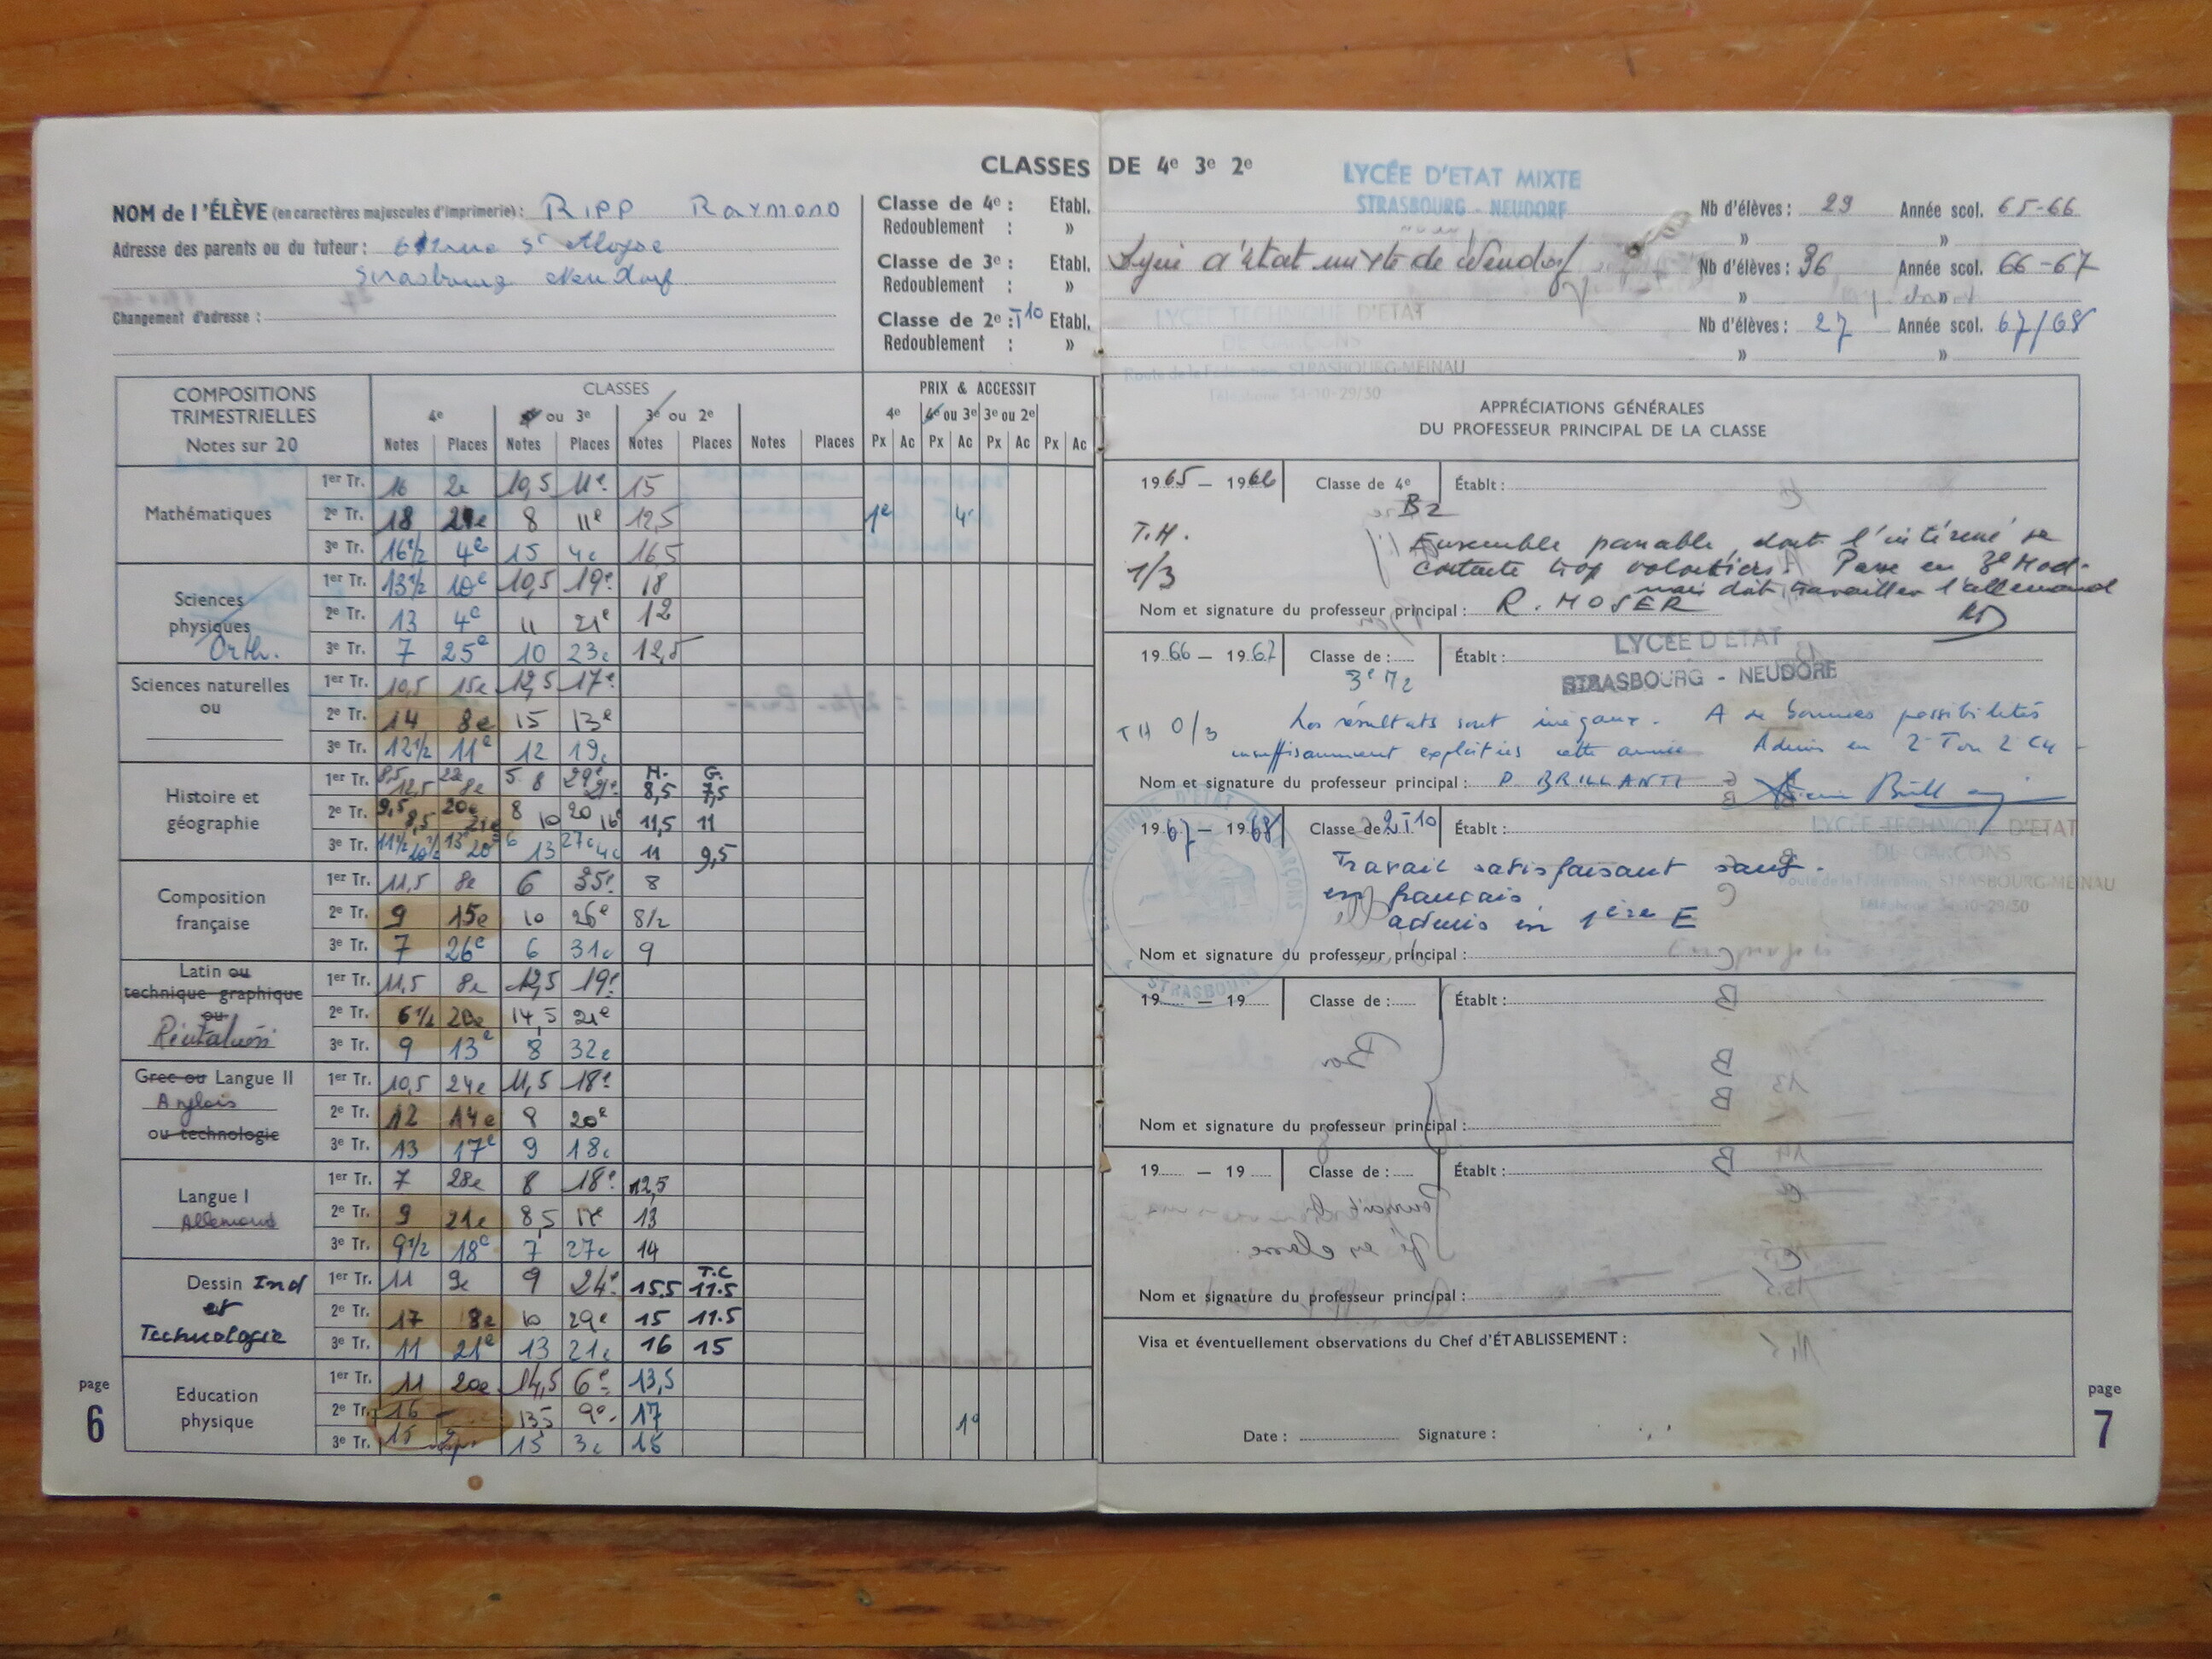 CLASSES DE 4e 3e 2e
LYCÉE D'ETAT MIXTE
STRASBOURG - NEUDORF
NOM de l'ÉLÈVE (en caractères majuscules d'imprimerie) : RIPP RAYMOND
Adresse des parents ou du tuteur : rue St Aloyse
Strasbourg Neudorf
Changement d'adresse :
Classe de 4e : Etabl. Nb d'élèves : 29 Année scol. 65-66
Redoublement : » » »
Classe de 3e : Etabl. Lycée d'état mixte de Neudorf Nb d'élèves : 36 Année scol. 66-67
Redoublement : » » »
Classe de 2e : T10 Etabl. LYCÉE TECHNIQUE D'ETAT Nb d'élèves : 27 Année scol. 67/68
DE GARÇONS
Redoublement : » » »
Route de la Fédération, STRASBOURG-MEINAU
Téléphone 34-10-29/30
COMPOSITIONS TRIMESTRIELLES
Notes sur 20
CLASSES
PRIX & ACCESSIT
4e ou 3e 3e ou 2e
4e 4e ou 3e 3e ou 2e
Notes Places Notes Places Notes Places Notes Places Px Ac Px Ac Px Ac Px Ac
Mathématiques
1er Tr. 16 2e 10,5 11e 15
2e Tr. 18 8 11e 12,5 1e 4e
3e Tr. 16 1/2 4e 15 4e 16,5
Sciences physiques
Orth.
1er Tr. 13 1/2 10e 10,5 19e 18
2e Tr. 13 4e 11 21e 12
3e Tr. 7 25e 10 23e 12,5
Sciences naturelles
ou
1er Tr. 10,5 15e 12,5 17e
2e Tr. 14 8e 15 13e
3e Tr. 12 1/2 11e 12 19e
Histoire et géographie
H. G.
1er Tr. 8,5 12,5 22e 8e 5 8 29e 21e 8,5 7,5
2e Tr. 9,5 8,5 20e 21e 8 10 20 16e 11,5 11
3e Tr. 11 1/2 10 1/2 13e 20e 6 13 27e 4e 11 9,5
Composition française
1er Tr. 11,5 8e 6 35e 8
2e Tr. 9 15e 10 26e 8 1/2
3e Tr. 7 26e 6 31e 9
Latin ou
technique graphique
ou
Récitation
1er Tr. 11,5 8e 12,5 19e
2e Tr. 6 1/2 20e 14,5 21e
3e Tr. 9 13e 8 32e
Grec ou Langue II
Anglais
ou technologie
1er Tr. 10,5 24e 11,5 18e
2e Tr. 12 14e 8 20e
3e Tr. 13 17e 9 18e
Langue I
Allemand
1er Tr. 7 28e 8 18e 12,5
2e Tr. 9 21e 8,5 17e 13
3e Tr. 9 1/2 18e 7 27e 14
Dessin Ind
et
Technologie
T.C
1er Tr. 11 9e 9 24e 15.5 11.5
2e Tr. 17 8e 10 29e 15 11.5
3e Tr. 11 21e 13 21e 16 15
Education physique
1er Tr. 11 20e 14,5 6e 13,5
2e Tr. 16 13,5 9e 17 1e
3e Tr. 15 15 3e 15
page
6
APPRÉCIATIONS GÉNÉRALES
DU PROFESSEUR PRINCIPAL DE LA CLASSE
1965 - 1966 Classe de 4e Établt :
B2
T.H. 1/3
Ensemble passable, dont l'intéressé se
contente trop volontiers. Passe en 3e Mod.
mais doit travailler l'allemand
Nom et signature du professeur principal : R. MOSER
1966 - 1967 Classe de : Établt : LYCÉE D'ETAT
STRASBOURG - NEUDORF
3e M2
TH 0/3
Les résultats sont inégaux. A de bonnes possibilités
insuffisamment exploitées cette année. Admis en 2 T ou 2
Nom et signature du professeur principal : P. BRILLANTI
1967 - 1968 Classe de 2T10 Établt : LYCÉE TECHNIQUE D'ETAT
DE GARÇONS
Route de la Fédération, STRASBOURG-MEINAU
Téléphone 34-10-29/30
Travail satisfaisant sauf
en français
admis en 1ère E
Nom et signature du professeur principal :
19 - 19 Classe de : Établt :
Nom et signature du professeur principal :
19 - 19 Classe de : Établt :
Nom et signature du professeur principal :
Visa et éventuellement observations du Chef d'ÉTABLISSEMENT :
Date : Signature :
page
7